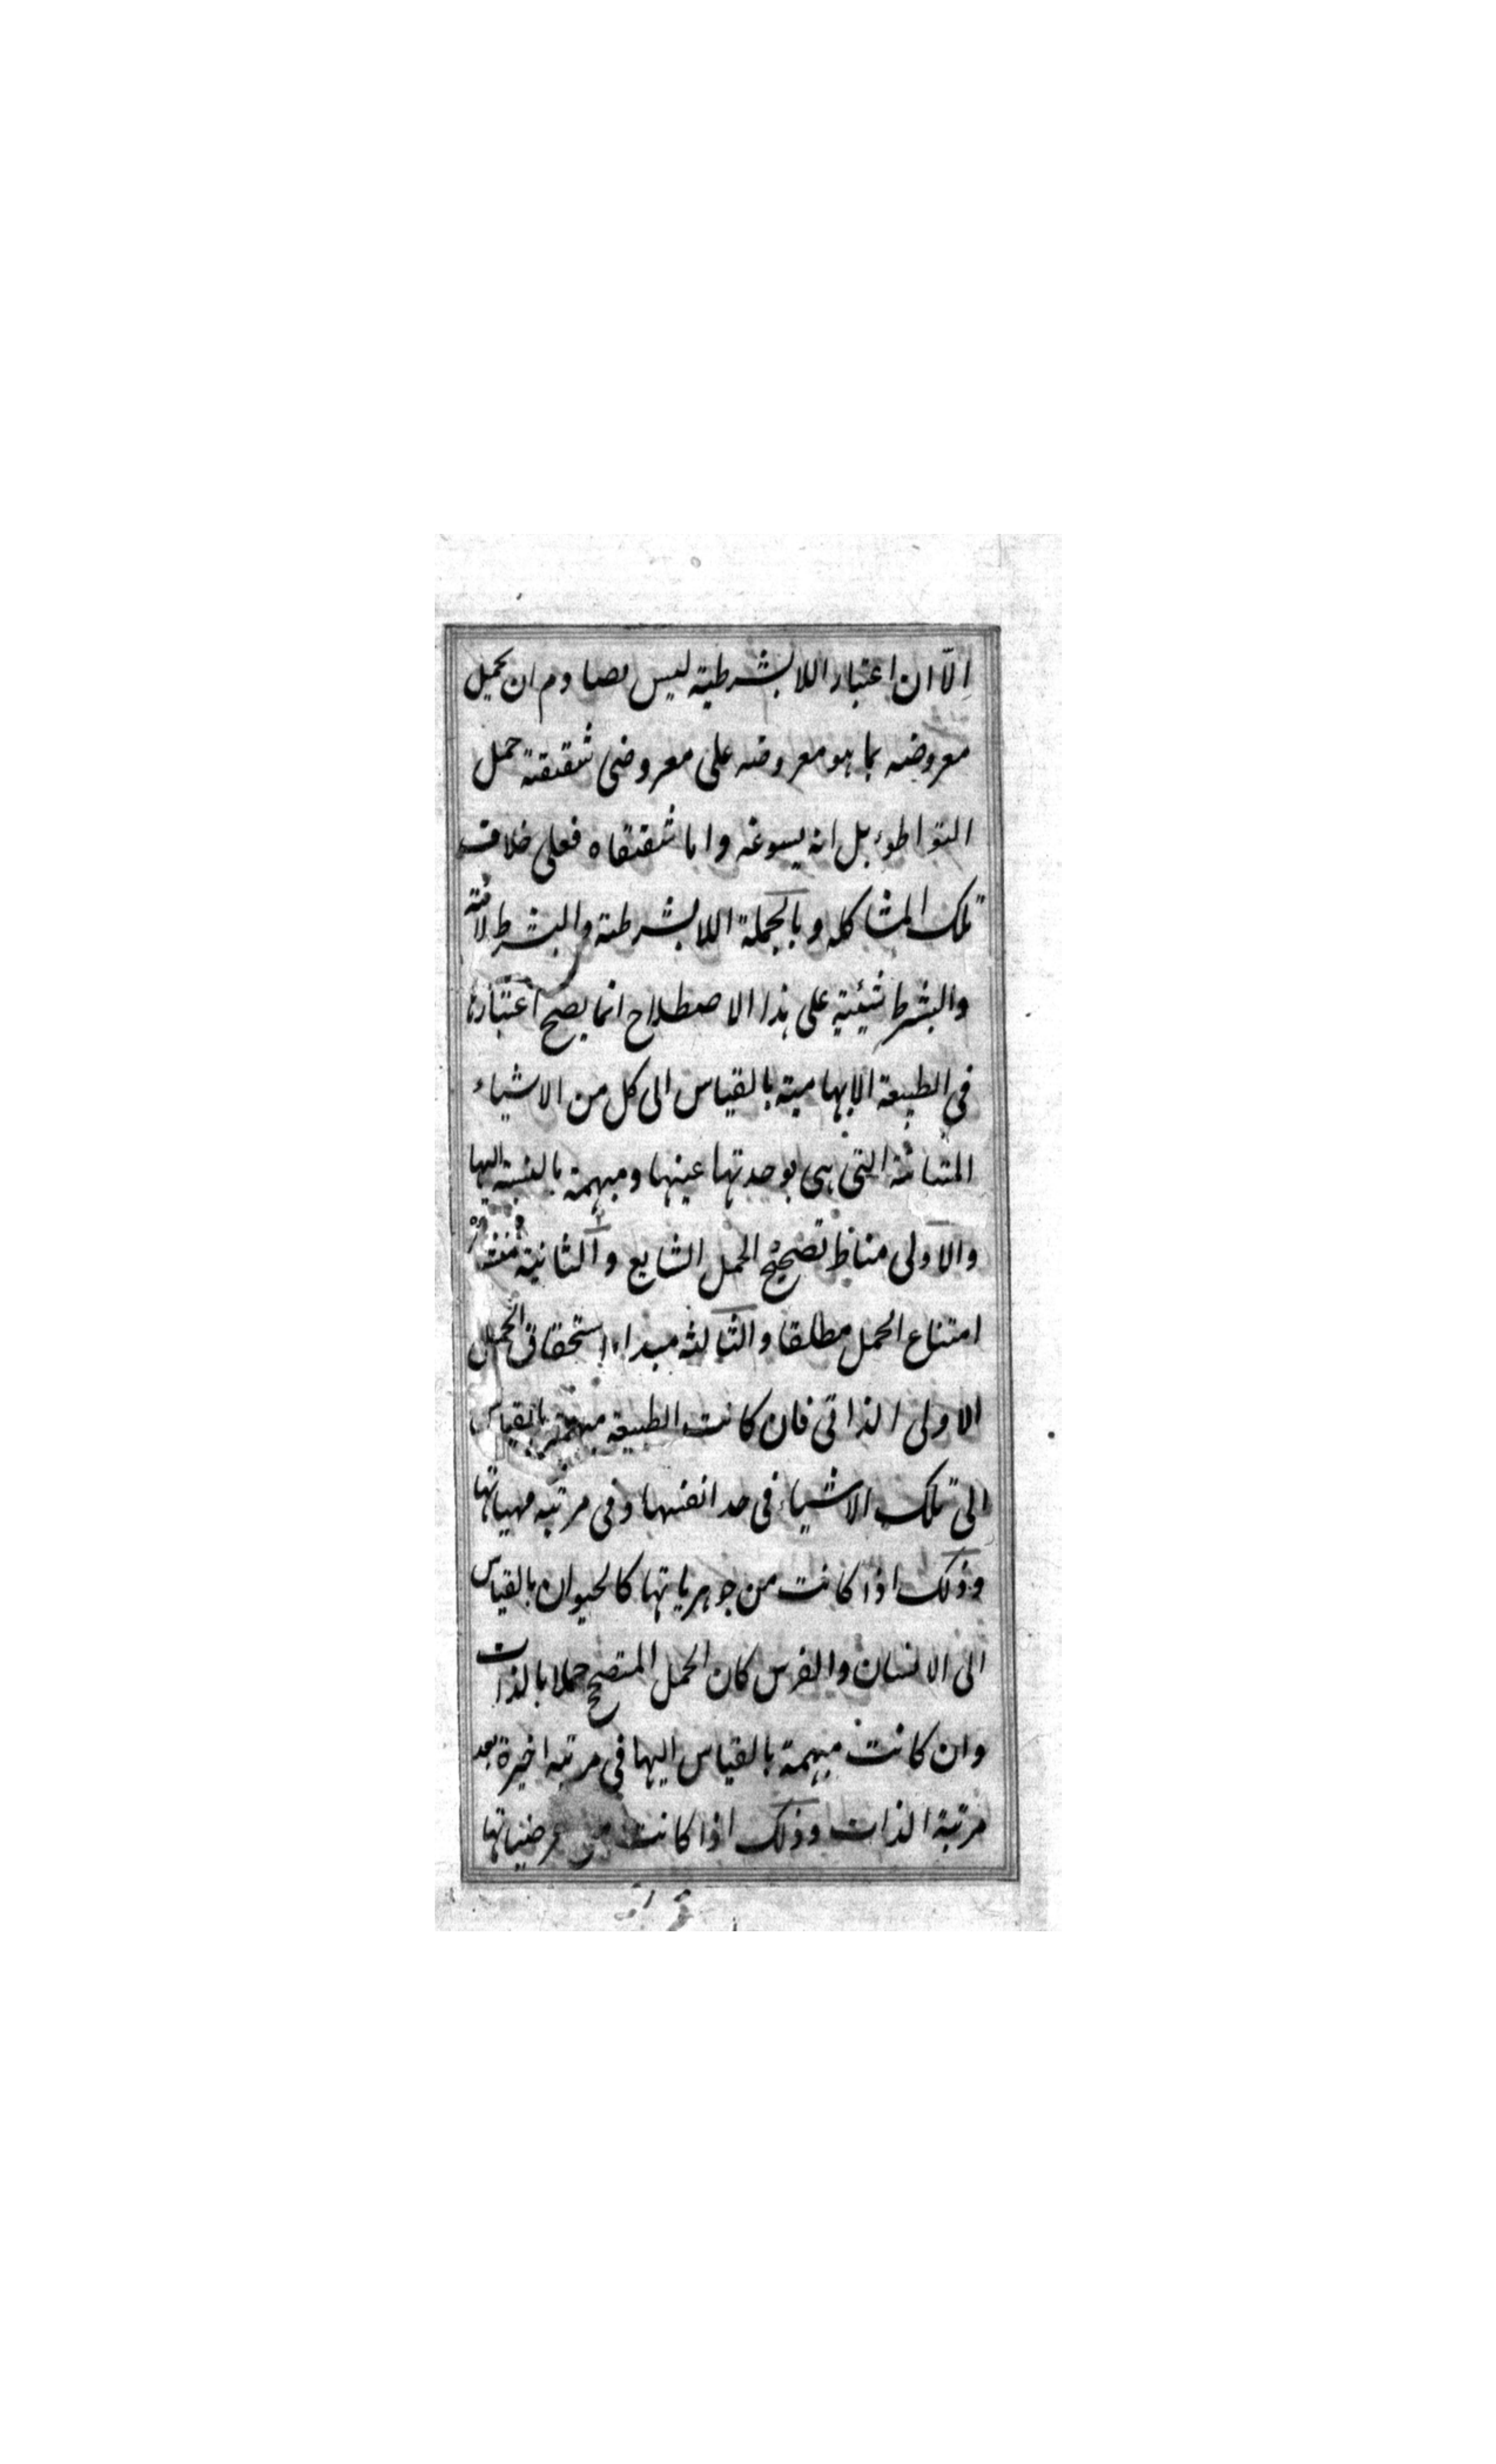 الّا ان اعتبار اللابشرطية ليس يصادم ان يحمل
معروضه بما هو معروضه على معروضى شقيقته حمل
التواطوء بل انه يسوغه واما شقيقتاه فعلى خلاف
تلك المشاكله وبالجملة اللابشرطية والبشرط لائية
والبشرط شيئية على هذا الاصطلاح انما يصح اعتبارها
فى الطبيعة الابهامية بالقياس الى كل من الاشياء
التى هى بوحدتها عينها ومبهمة بالنسبة اليها
والاولى مناط تصحيح الحمل الشايع والثانية
امتناع الحمل مطلقا والثالثه مبداء استحقاق الحمل
الاولى الذاتى فان كانت الطبيعة مبهمة بالقياس
الى تلك الاشياء فى حد انفسها وفى مرتبه مهياتها
وذلك اذا كانت من جوهرياتها كالحيوان بالقياس
الى الانسان والفرس كان الحمل المتصحح حملا بالذات
وان كانت مبهمة بالقياس اليها فى مرتبه اخيرة بعد
مرتبة الذات وذلك اذا كانت من عرضياتها